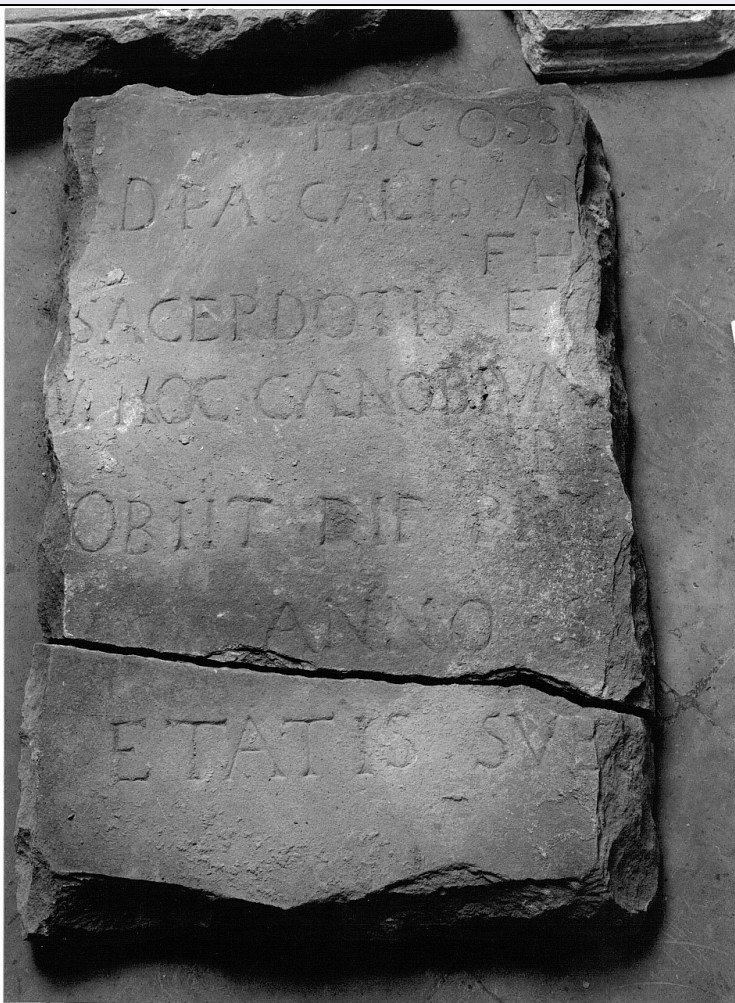 HIC OSSA
D PASCALIS
FH
SACERDOTIS ET
VI HOC CÆNOBIVM
OBIIT DIE
ANNO
ETATIS SVE